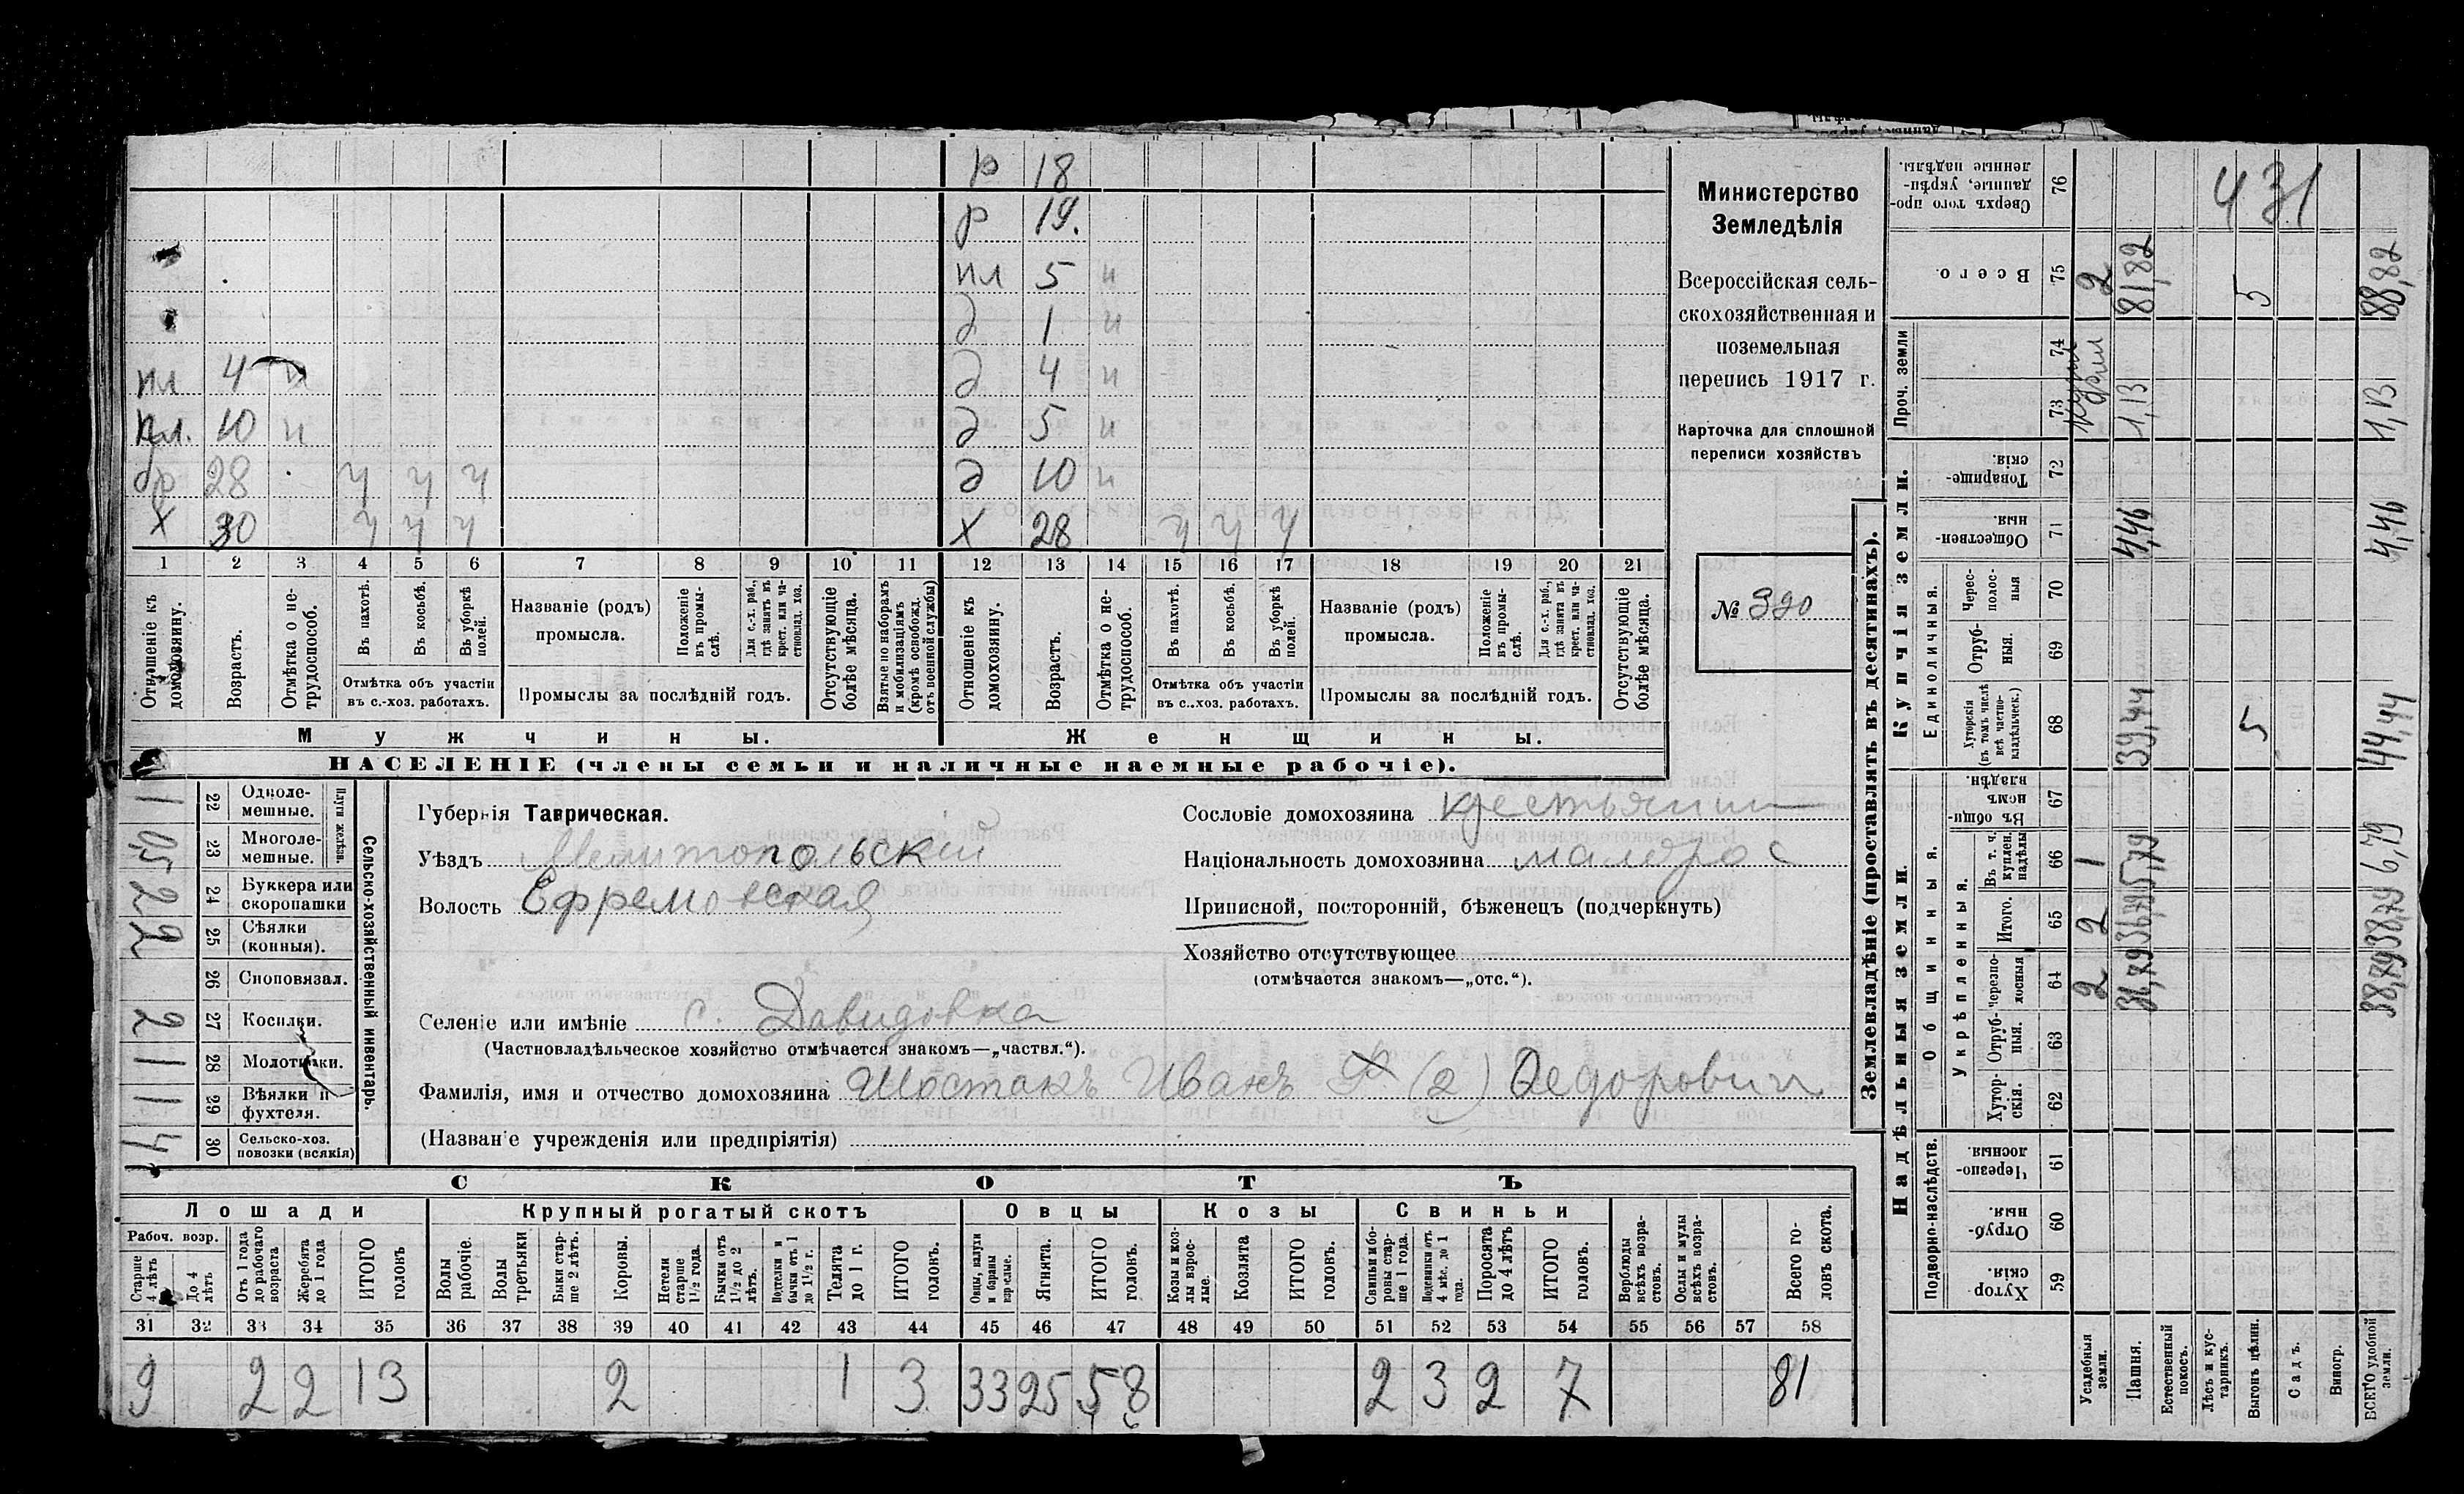 р 18
р 19.
пл 5 н
д 1 н
пл 4 н д 4 н
пл. 10 н д 5 н
бр 28 ч ч ч д 10 н
х 30 ч ч ч х 28 ч ч ч
1 2 3 4 5 6 7 8 9 10 11 12 13 14 15 16 17 18 19 20 21
Отношеніе къ домохозяину.
Возрастъ.
Отмѣтка о нетрудоспособ.
Въ пахотѣ.
Въ косьбѣ.
Въ уборкѣ полей.
Отмѣтка объ участіи
въ с.-хоз. работахъ.
Названіе (родъ)
промысла.
Положеніе въ промыслѣ.
Для с.-х. раб., гдѣ занятъ въ крест. или частновлад. хоз.
Промыслы за послѣдній годъ.
Отсутствующіе болѣе мѣсяца.
Взятые по наборамъ и мобилизаціямъ (кромѣ освобожд. отъ военной службы)
Отношеніе къ домохозяину.
Возрастъ.
Отмѣтка о нетрудоспособ.
Въ пахотѣ.
Въ косьбѣ.
Въ уборкѣ полей.
Отмѣтка объ участіи
въ с..хоз. работахъ.
Названіе (родъ)
промысла.
Положеніе въ промыслѣ.
Для с.-х. раб., гдѣ занята въ крест. или частновлад. хоз.
Промыслы за послѣдній годъ.
Отсутствующіе болѣе мѣсяца.
Мужчины. Женщины.
НАСЕЛЕНІЕ (члены семьи и наличные наемные рабочіе).
Министерство
Земледѣлія
Всероссійская сель-
скохозяйственная и
поземельная
перепись 1917 г.
Карточка для сплошной
переписи хозяйствъ
№ 390
Сельско-хозяйственный инвентарь.
Плуги желѣзн.
1 22 Одноле-
мешные.
0,5 23 Многоле-
мешные.
2 24 Буккера или
скоропашки
2 25 Сѣялки
(конныя).
26 Сноповязал.
2 27 Косилки.
1 28 Молотилки.
1 29 Вѣялки и
фухтеля.
4 30 Сельско-хоз.
повозки (всякія)
Губернія Таврическая.
Уѣздъ Мелитопольскій
Волость Ефремовская
Сословіе домохозяина крестьянин
Національность домохозяина малорос
Приписной, посторонній, бѣженецъ (подчеркнуть)
Хозяйство отсутствующее
(отмѣчается знакомъ—„отс.“).
Селеніе или имѣніе с. Давидовка
(Частновладѣльческое хозяйство отмѣчается знакомъ—„частвл.“).
Фамилія, имя и отчество домохозяина Шостакъ Иванъ Ф (2) Федорович
(Названіе учрежденія или предпріятія)
СКОТЪ
Лошади Крупный рогатый скотъ Овцы Козы Свиньи
Рабоч. возр.
Старше 4 лѣтъ
До 4 лѣтъ
Отъ 1 года до рабочаго возраста
Жеребята до 1 года
ИТОГО головъ
Волы рабочіе.
Волы третьяки
Быки старше 2 лѣтъ.
Коровы.
Нетели старше 1½ года.
Бычки отъ 1½ до 2 лѣтъ.
Подтелки и бычки отъ 1 до 1½ г.
Телята до 1 г.
ИТОГО головъ.
Овцы, валухи и бараны взрослые.
Ягнята.
ИТОГО головъ.
Козы и козлы взрослые.
Козлята
ИТОГО головъ.
Свиньи и боровы старше 1 года.
Подсвинки отъ 4 мѣс. до 1 года.
Поросята до 4 лѣтъ
ИТОГО головъ.
Верблюды всѣхъ возрастовъ.
Ослы и мулы всѣхъ возрастовъ.
Всего головъ скота.
31 32 33 34 35 36 37 38 39 40 41 42 43 44 45 46 47 48 49 50 51 52 53 54 55 56 57 58
9 2 2 13 2 1 3 33 25 58 2 3 2 7 81
6
Землевладѣніе (проставлять въ десятинахъ).
Надѣльныя земли. Купчія земли. Проч. земли
Подворно-наслѣдств. Общинныя. Укрѣпленныя. Единоличныя.
59 Хуторскія
60 Отрубныя.
61 Черезполосныя.
62 Хуторскія.
63 Отрубныя.
64 Черезполосныя
65 Итого.
66 Въ т. ч. куплен. надѣлы
67 Въ общинномъ владѣн.
68 Хуторскія (въ томъ числѣ всѣ частновладѣльческ.)
69 Отрубныя.
70 Чересполосныя
71 Общественныя.
72 Товарищескія.
73 74
75 Всего.
76 Сверхъ того проданные, укрѣпленные надѣлы.
Усадебныя земли. 2 2 1 2
Пашня. 31,79 36,79 5,79 39,44 4,46 1,13 81,82
Естественный покосъ.
Лѣсъ и кустарникъ.
Выгонъ цѣлин. 5 5
Садъ.
Виногр.
ВСЕГО удобной земли. 38,79 38,79 6,79 44,44 4,46 1,13 88,82
431